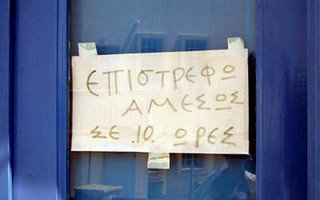 ΕΠΙΣΤΡΕΦΩ
ΑΜΕΣΩΣ
ΣΕ .10. ΩΡΕΣ